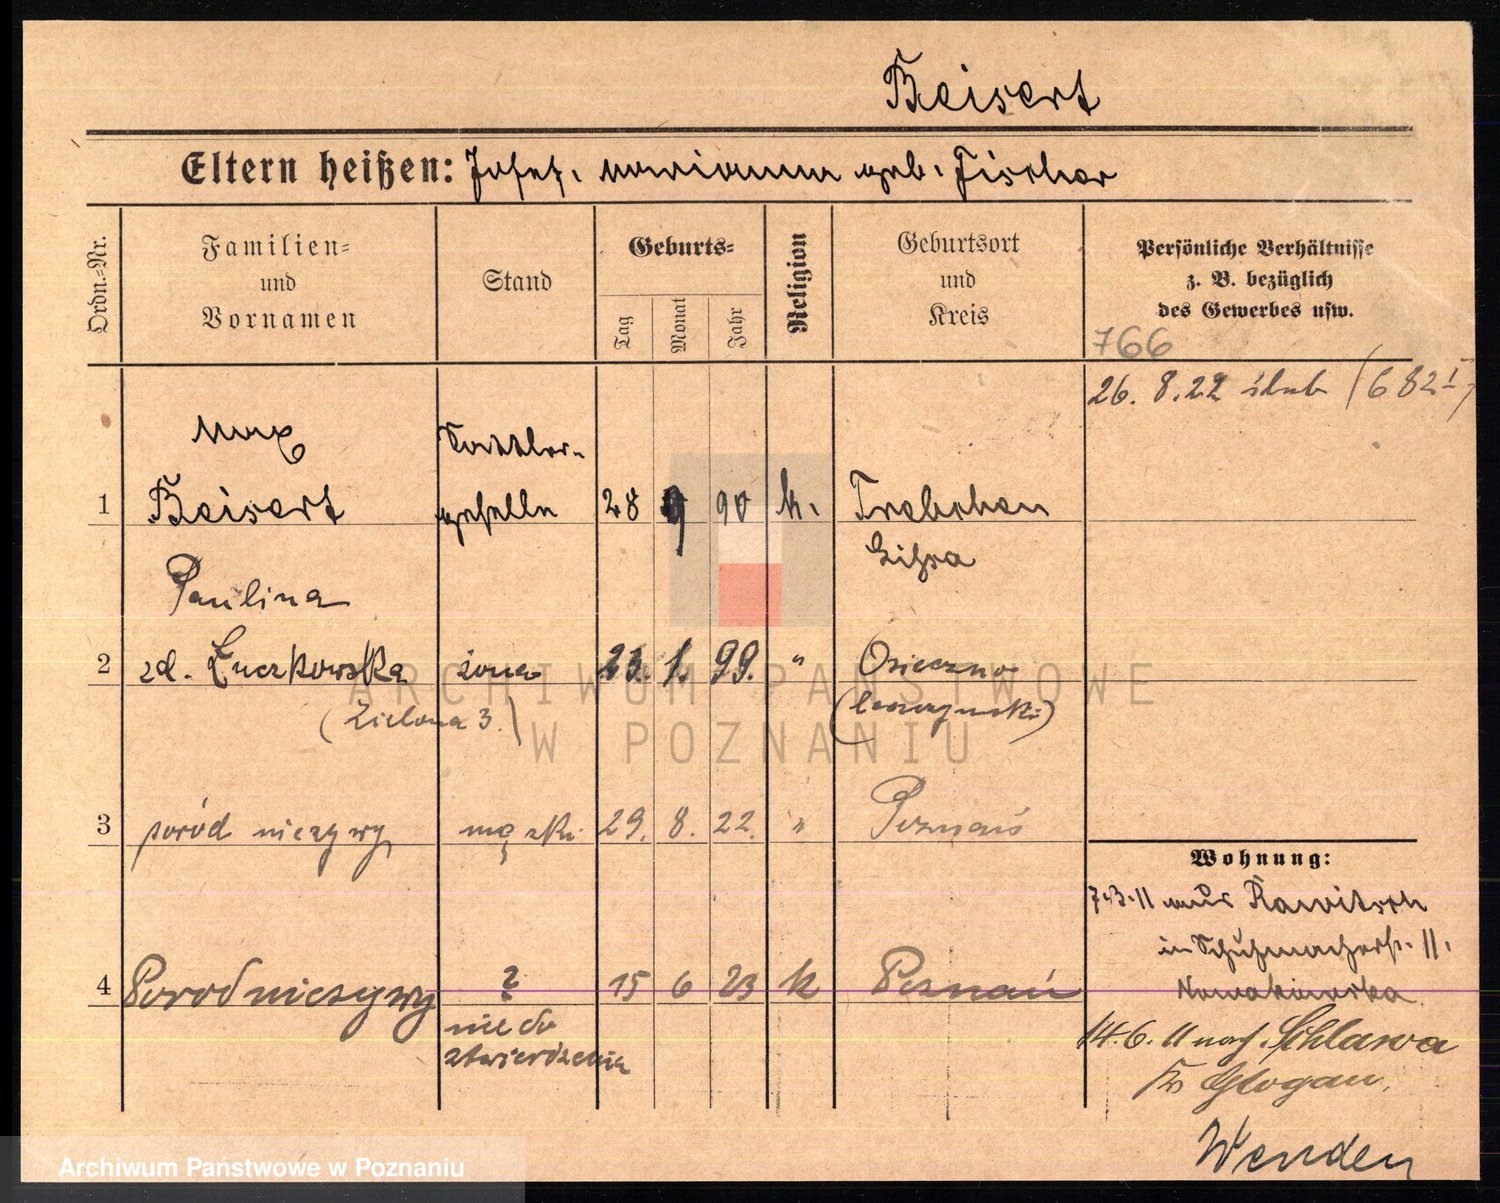 Beisert
Eltern heißen: Josef, Marianna geb. Fischer
Ordn.=Nr.
Familien=
und
Vornamen
Stand
Geburts=
Tag
Monat
Jahr
Religion
Geburtsort
und
Kreis
Persönliche Verhältnisse
z. B. bezüglich
des Gewerbes usw.
766
26. 8. 22 ślub (682 I)
Max
Sattler-
1 Beisert geselle 28 9 90 k. Trebchen
Lissa
Paulina
2 zd. Łuczkowska żona 23. 1. 99. " Osieczno
(Zielona 3.) (leszczyński)
3 poród nieżywy męzki 29. 8. 22. " Poznań
Wohnung:
7.3.11 aus Rawitsch
in Schuhmacherstr. 11.
Nowakowska
4 Poród nieżywy ? 15 6 23 k Poznań
nie do
stwierdzenia
14.6.11 nach Schlawa
Kr Glogau
Wenden
ARCHIWUM PAŃSTWOWE
W POZNANIU
Archiwum Państwowe w Poznaniu